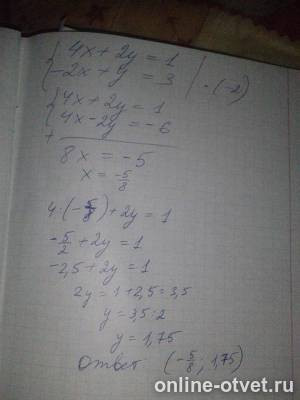 4x + 2y = 1
-2x + y = 3 | · (-2)
4x + 2y = 1
4x - 2y = -6
+
8x = -5
x = -5/8
4 · (-5/8) + 2y = 1
-5/2 + 2y = 1
-2,5 + 2y = 1
2y = 1 + 2,5 = 3,5
y = 3,5 : 2
y = 1,75
Ответ (-5/8 ; 1,75)
online-otvet.ru